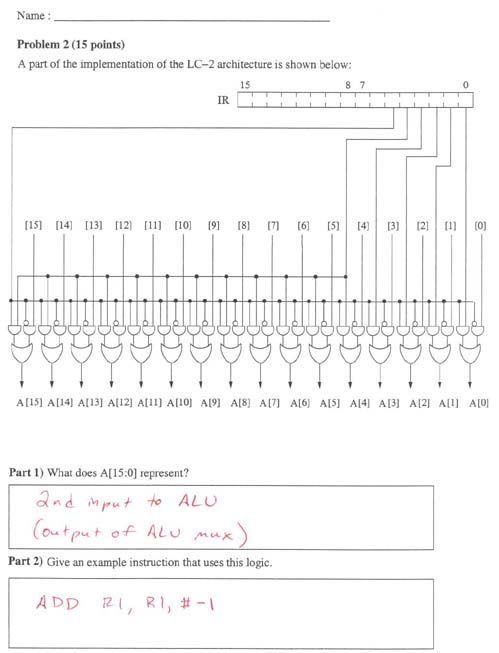 Name :
Problem 2 (15 points)
A part of the implementation of the LC–2 architecture is shown below:
15 8 7 0
IR
[15] [14] [13] [12] [11] [10] [9] [8] [7] [6] [5] [4] [3] [2] [1] [0]
A[15] A[14] A[13] A[12] A[11] A[10] A[9] A[8] A[7] A[6] A[5] A[4] A[3] A[2] A[1] A[0]
Part 1) What does A[15:0] represent?
2nd input to ALU
(output of ALU mux)
Part 2) Give an example instruction that uses this logic.
ADD R1, R1, #-1